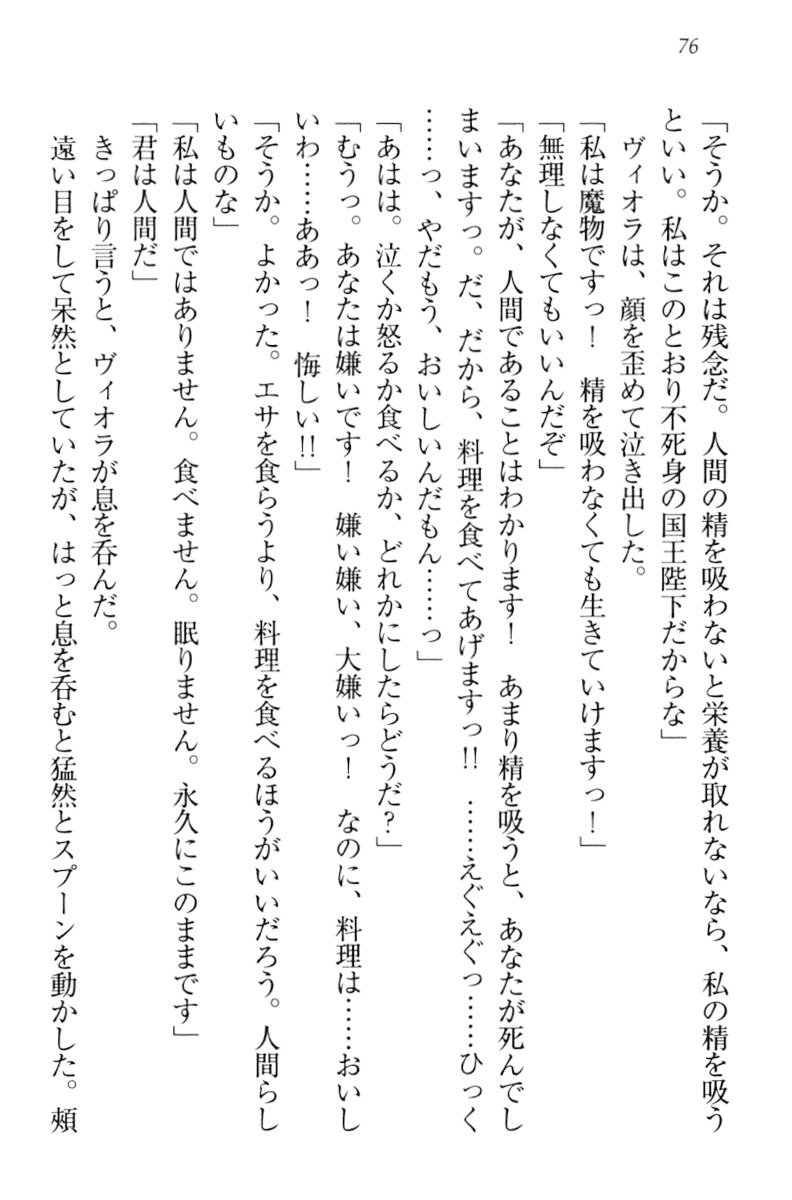 76
「そうか。それは残念だ。人間の精を吸わないと栄養が取れないなら、私の精を吸う
といい。私はこのとおり不死身の国王陛下だからな」
　ヴィオラは、顔を歪めて泣き出した。
「私は魔物ですっ！　精を吸わなくても生きていけますっ！」
「無理しなくてもいいんだぞ」
「あなたが、人間であることはわかります！　あまり精を吸うと、あなたが死んでし
まいますっ。だ、だから、料理を食べてあげますっ!!　……えぐえぐっ……ひっく
……っ、やだもう、おいしいんだもん……っ」
「あはは。泣くか怒るか食べるか、どれかにしたらどうだ？」
「むうっ。あなたは嫌いです！　嫌い嫌い、大嫌いっ！　なのに、料理は……おいし
いわ……ああっ！　悔しい!!」
「そうか。よかった。エサを食らうより、料理を食べるほうがいいだろう。人間らし
いものな」
「私は人間ではありません。食べません。眠りません。永久にこのままです」
「君は人間だ」
　きっぱり言うと、ヴィオラが息を呑んだ。
　遠い目をして呆然としていたが、はっと息を呑むと猛然とスプーンを動かした。頬